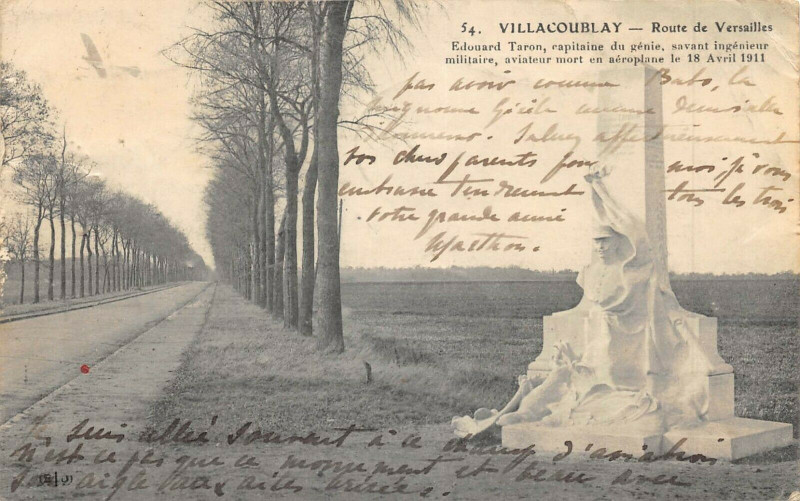 54. VILLACOUBLAY — Route de Versailles
Edouard Taron, capitaine du génie, savant ingénieur
militaire, aviateur mort en aéroplane le 18 Avril 1911
pas avoir comme Babo, la
mignonne Gisèle
Saluez affectueusement
vos chers parents pour moi je vous
embrasse tendrement tous les trois
votre grande amie
Marthon.
Je suis allée souvent à ce champ d'aviation
N'est ce pas que ce monument est beau avec
son aigle aux ailes